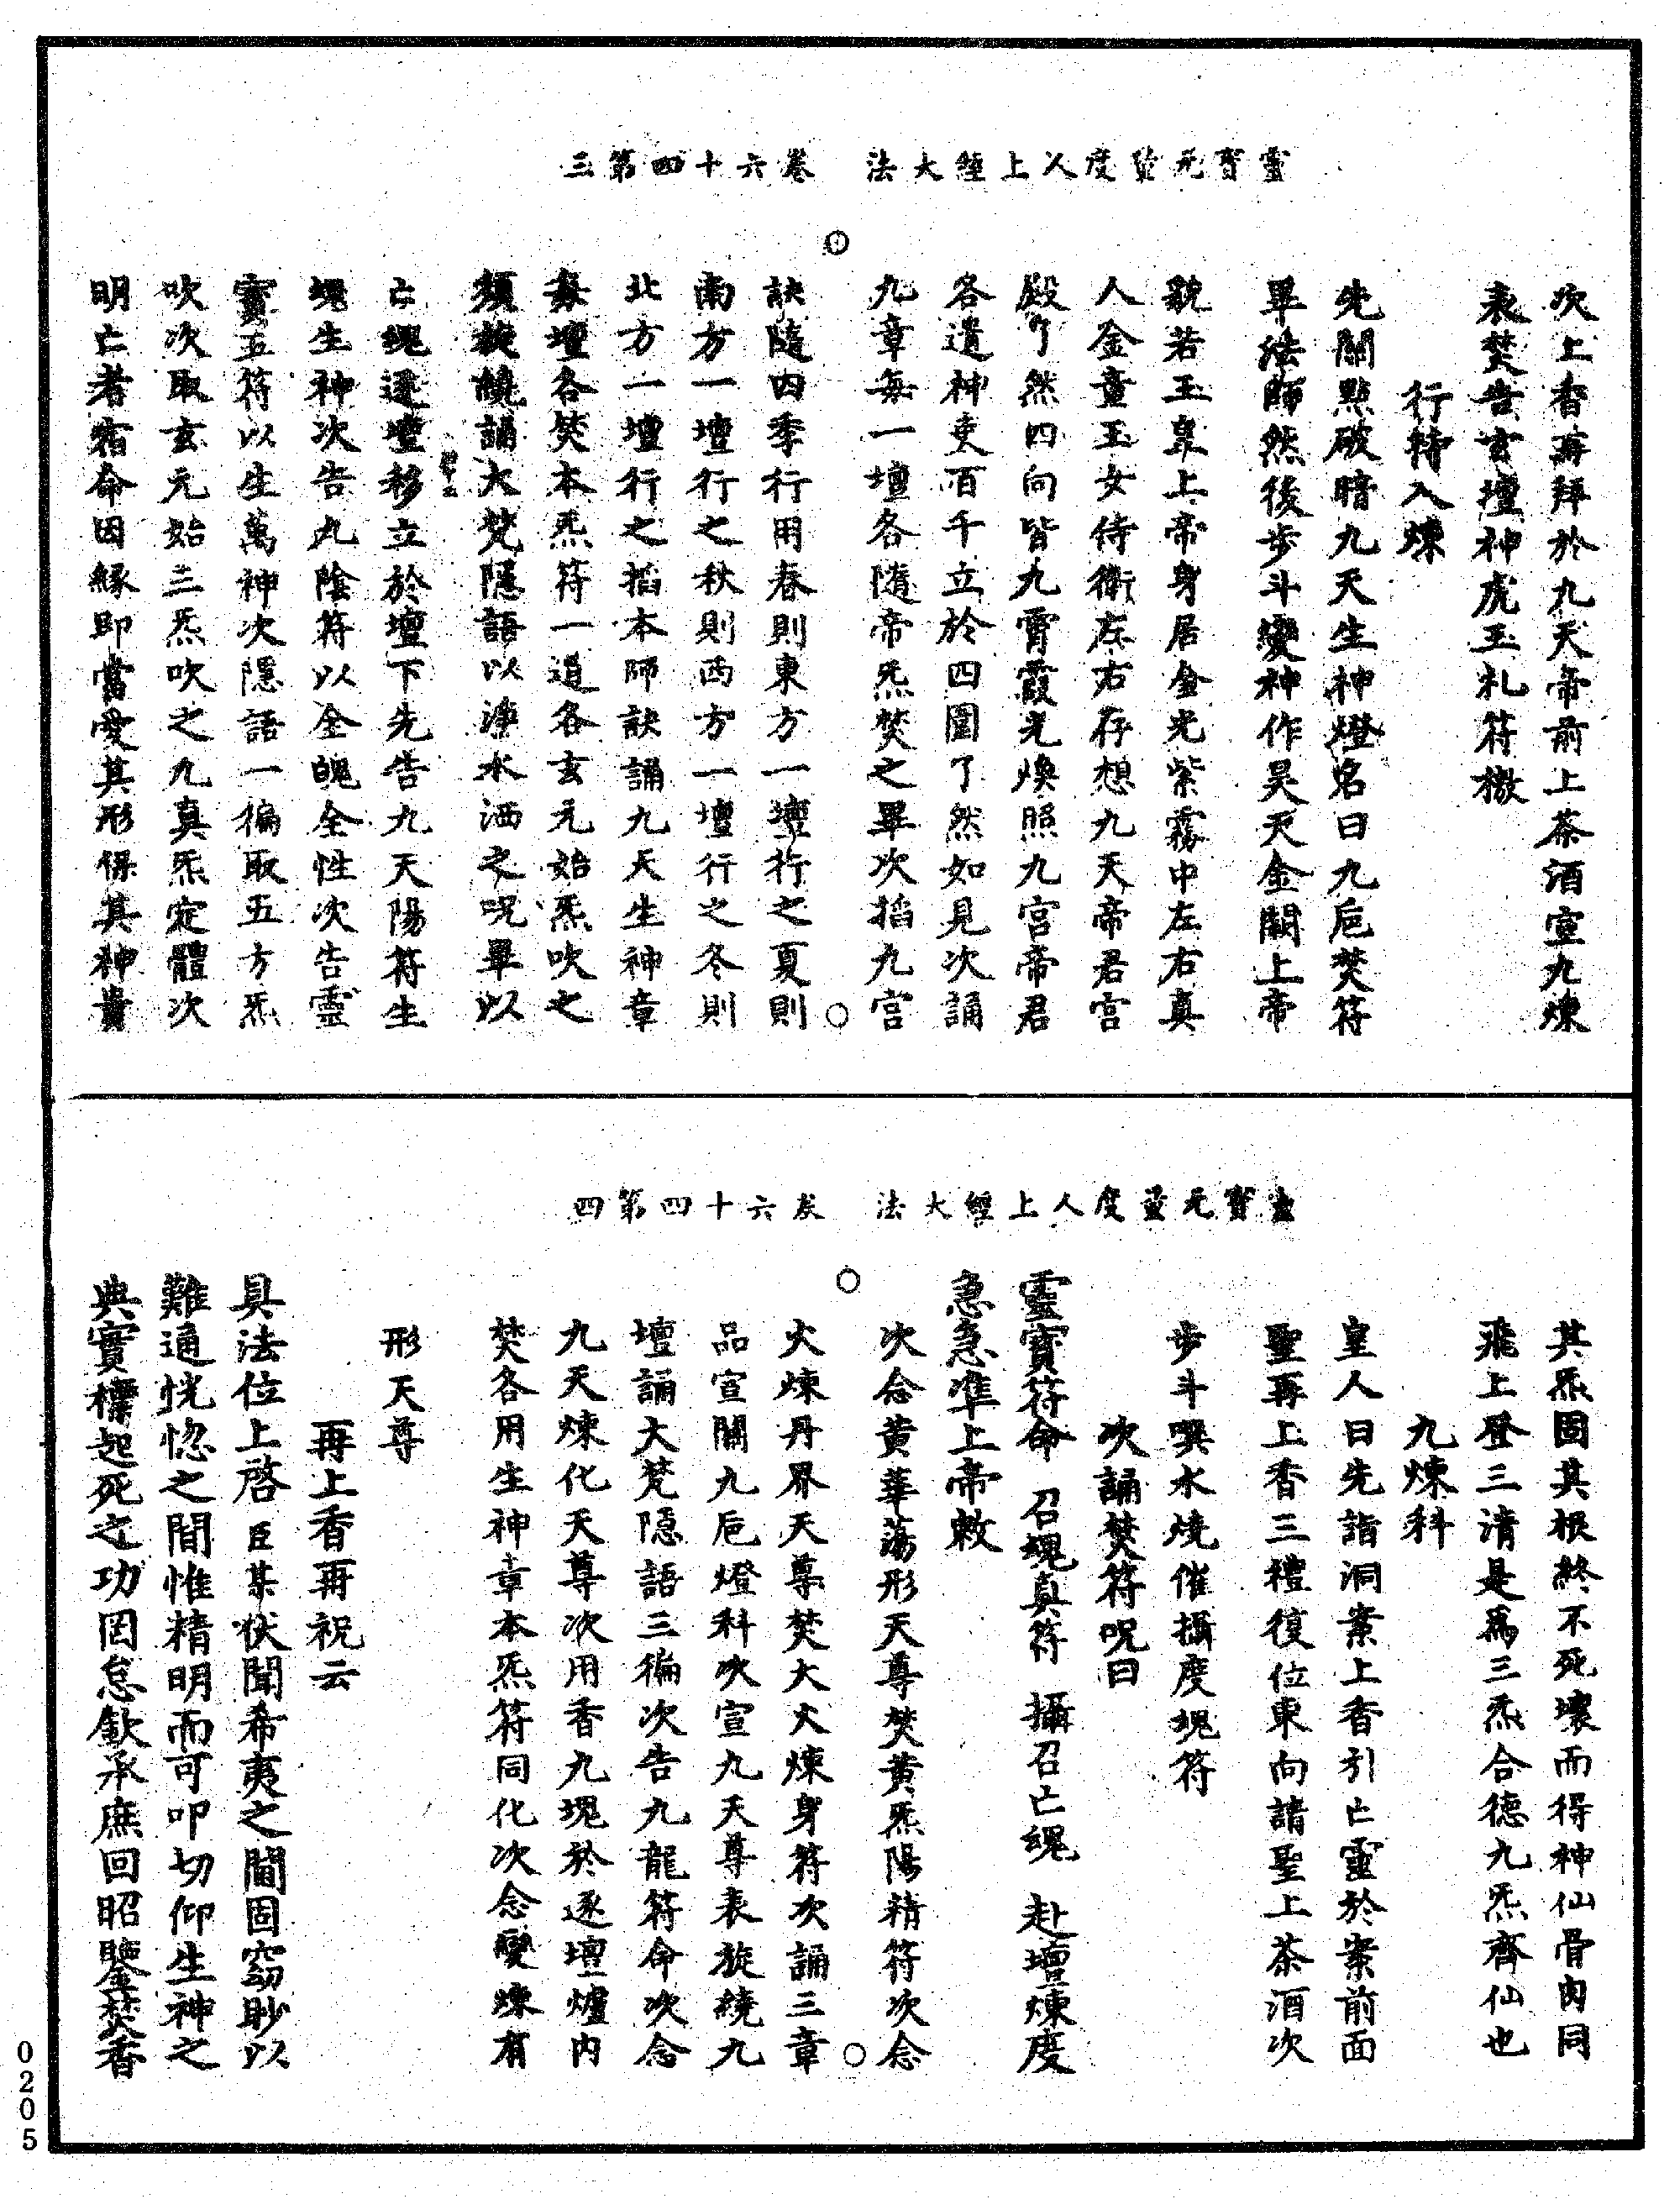 靈寶元量度人上經大法　卷六十四第三
次上香再拜於九天帝前上茶酒宣九煉
表焚告玄壇神虎玉札符檄
行持入煉
先關點破暗九天生神燈名曰九巵焚符
畢法師然後步斗變神作昊天金闕上帝
貌若玉皇上帝身居金光紫霧中左右真
人金童玉女侍衛左右存想九天帝君宮
殿了然四向皆九霄霞光煥照九宮帝君
各遣神吏百千立於四圍了然如見次誦
九章每一壇各隨帝炁焚之畢次掐九宮
訣隨四季行用春則東方一壇行之夏則
南方一壇行之秋則西方一壇行之冬則
北方一壇行之掐本師訣誦九天生神章
每壇各焚本炁符一道各玄元始炁吹之
須旋繞誦大梵隱語以淨水洒之呪畢以
亡魂逐壇移立於壇下先告九天陽符生
魂生神次告九陰符以全魄全性次告靈
寶五符以生萬神次隱語一徧取五方炁
吹次取玄元始三炁吹之九真炁定體次
明亡者宿命因緣即當愛其形保其神貴
靈寶元量度人上經大法　卷六十四第四
其炁固其根終不死壞而得神仙骨肉同
飛上登三清是爲三炁合德九炁齊仙也
九煉科
皇人曰先詣洞案上香引亡靈於案前面
聖再上香三禮復位東向請聖上茶酒次
步斗噀水燒催攝度魂符
次誦焚符呪曰
靈寶符命　召魂真符　攝召亡魂　赴壇煉度
急急準上帝敕
次念黃華蕩形天尊焚黃炁陽精符次念
火煉丹界天尊焚大火煉身符次誦三章
品宣關九巵燈科次宣九天尊表旋繞九
壇誦大梵隱語三徧次告九龍符命次念
九天煉化天尊次用香九塊於逐壇爐內
焚各用生神章本炁符同化次念變煉有
形天尊
再上香再祝云
具法位上啓臣某伏聞希夷之間固窈眇以
難通恍惚之間惟精明而可叩切仰生神之
典實標起死之功罔怠欽承庶回昭鑒焚香
0205